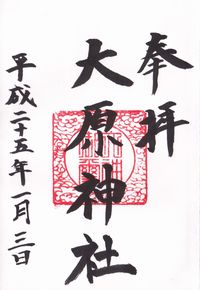 奉拝
大原神社
平成二十五年一月三日